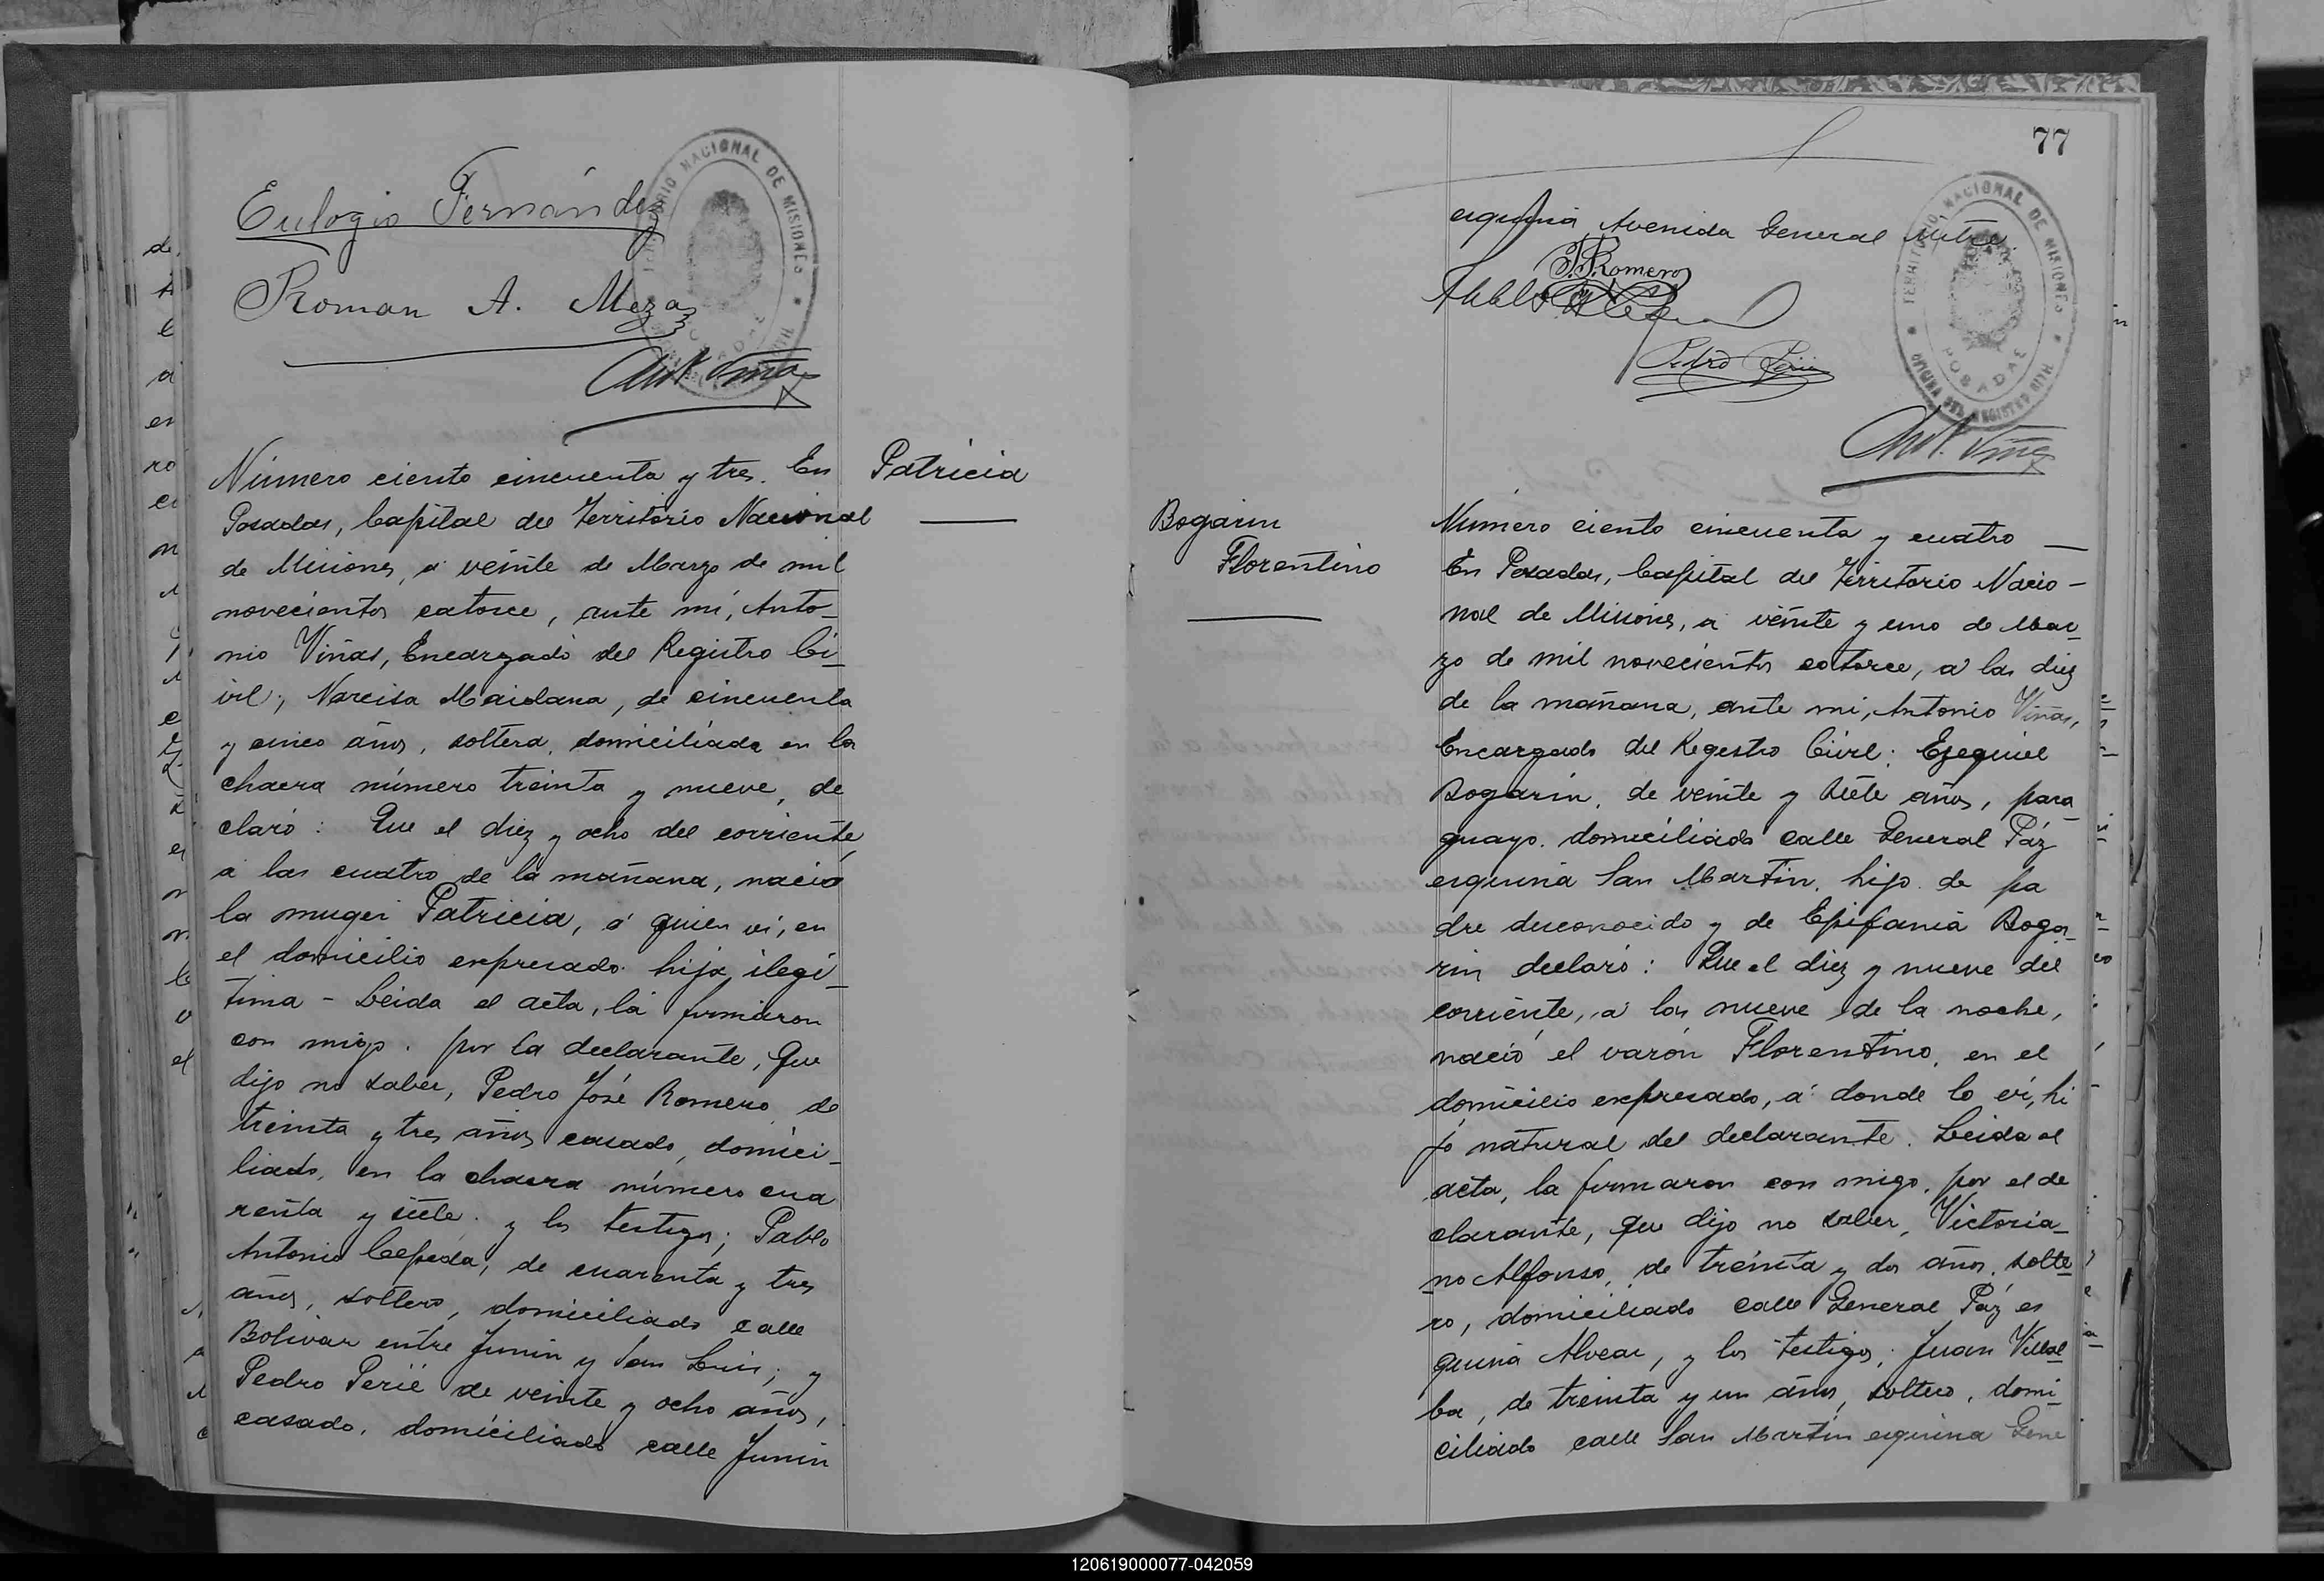 Eulogio Fernández
Roman A. Meza
Ant. Viñas
TERRITORIO NACIONAL DE MISIONES
POSADAS
Número ciento cincuenta y tres. En
Posadas, Capital del Territorio Nacional
de Misiones, a veinte de Marzo de mil
novecientos catorce, ante mí, Anto-
nio Viñas, Encargado del Registro Ci-
vil; Narcisa Maidana, de cincuenta
y cinco años, soltera, domiciliada en la
chacra número treinta y nueve, de
claró: Que el diez y ocho del corriente
a las cuatro de la mañana, nació
la muger Patricia, á quien ví, en
el domicilio expresado. hija ilegí-
tima - Leida el acta, la firmaron
con migo. por la declarante, que
dijo no saber, Pedro José Romero, de
treinta y tres años casado, domici-
liado, en la chacra número cua
renta y siete. y los testigos; Pablo
Antonio Cepeda, de cuarenta y tres
años, soltero, domiciliado calle
Bolivar entre Junin y San Luis; y
Pedro Perié de veinte y ocho años,
casado, domiciliado calle Junin
Patricia
77
esquina Avenida General Mitre.
P.J. Romero
Pablo A. Cepeda
Pedro Perié
TERRITORIO NACIONAL DE MISIONES
OFICINA DEL REGISTRO CIVIL
POSADAS
Ant. Viñas
Bogarin
Florentino
Número ciento cincuenta y cuatro —
En Posadas, Capital del Territorio Nacio-
nal de Misiones, a veinte y uno de Mar-
zo de mil novecientos catorce, a las diez
de la mañana, ante mi, Antonio Viñas,
Encargado del Registro Civil: Ezequiel
Bogarin, de veinte y siete años, para-
guayo. domiciliado calle General Páz
esquina San Martin, hijo de pa
dre desconocido y de Epifania Boga-
rin declaró: Que el diez y nueve del
corriente, a las nueve de la noche,
nació el varón Florentino, en el
domicilio expresado, á donde lo ví, hi
jo natural del declarante. Leida el
acta, la firmaron con migo, por el de
clarante, que dijo no saber, Victoria-
no Alfonso, de treinta y dos años, solte-
ro, domiciliado calle General Páz es
quina Alvear, y los testigos; Juan Villal-
ba, de treinta y un años, soltero, domi-
ciliado calle San Martin esquina Gene
120619000077-042059